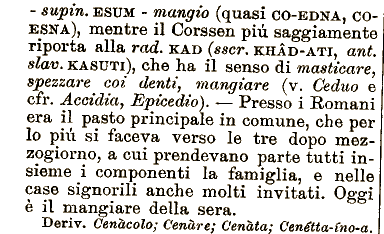 - supin. ESUM - mangio (quasi CO-EDNA, CO-
ESNA), mentre il Corssen piú saggiamente
riporta alla rad. KAD (sscr. KHÂD-ATI, ant.
slav. KASUTI), che ha il senso di masticare,
spezzare coi denti, mangiare (v. Ceduo e
cfr. Accidia, Epicedio). — Presso i Romani
era il pasto principale in comune, che per
lo piú si faceva verso le tre dopo mez-
zogiorno, a cui prendevano parte tutti in-
sieme i componenti la famiglia, e nelle
case signorili anche molti invitati. Oggi
è il mangiare della sera.
Deriv. Cenàcolo; Cenàre; Cenàta; Cenétta-íno-a.